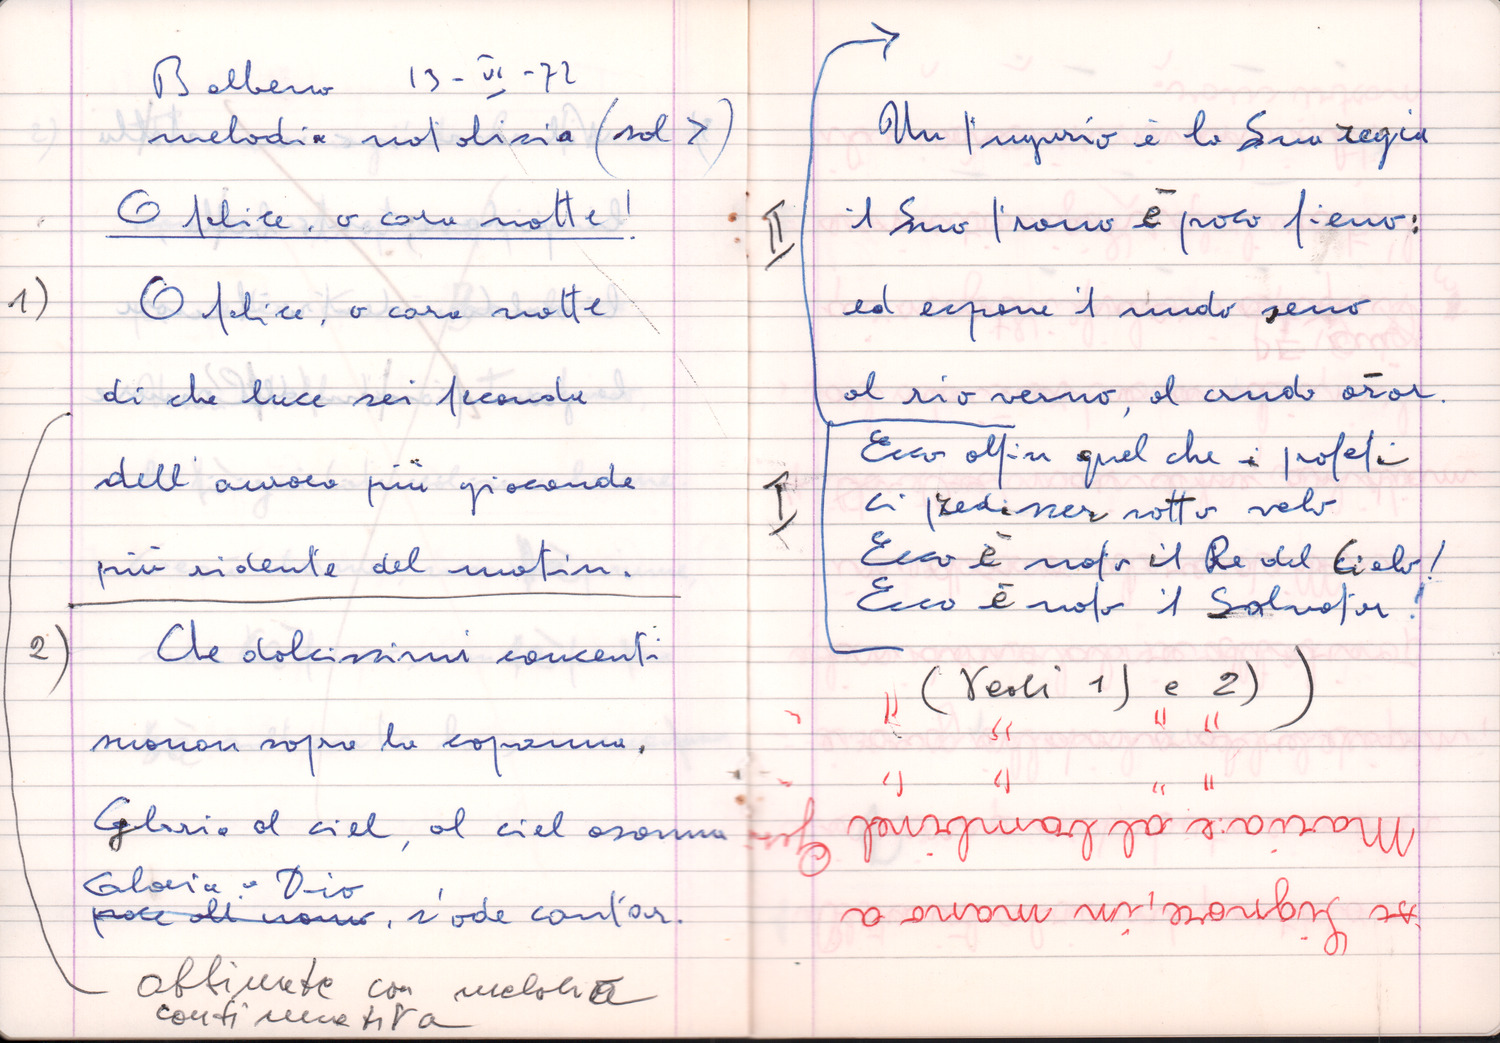 Balbeno 13-VI-72
melodia natalizia (sol >)
O felice, o cara notte!
1) O felice, o cara notte
di che luce sei feconda
dell'aurora più gioconda
più ridente del matin.
2) Che dolcissimi concenti
suonan sopra la capanna.
Gloria al ciel, al ciel osanna
Gloria a Dio
pace all'uomo, s'ode cantar.
abbinate con melodia
continuativa
II
Un tugurio è la Sua regia
il Suo trono è poco fieno:
ed espone il nudo seno
al rio verno, al crudo
I
Ecco alfin quel che i profeti
ci predisser sotto velo
Ecco è nato il Re del Cielo!
Ecco è nato il Salvator!
(Vedi 1) e 2))
" " " "
" " " "
se Signore, in mano a
Maria e al bambinel
Gesù